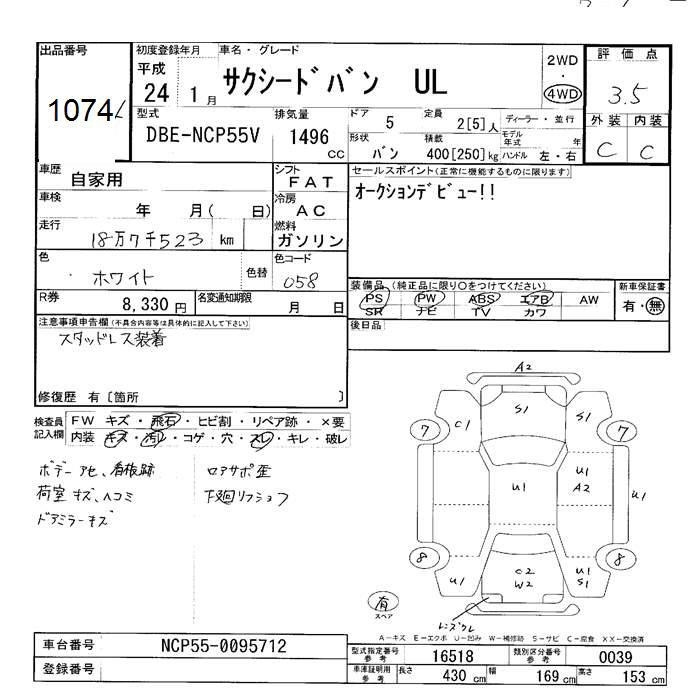 出品番号
1074
初度登録年月 車名・グレード
平成 24 1月
サクシードバン UL
2WD
・
4WD
評価点
3.5
外装 内装
C C
型式
DBE-NCP55V
排気量
1496 CC
ドア 5
定員 2[5]人
形状 バン
積載 400[250]kg
ディーラー・並行
モデル年式 年
ハンドル 左・右
車歴
自家用
シフト
FAT
車検
年 月( 日)
冷房
AC
走行
18万7千523 km
燃料
ガソリン
色
ホワイト
色替
色コード
058
R券
8,330円
名変通知期限
月 日
セールスポイント(正常に機能するものに限ります)
オークションデビュー!!
装備品 (純正品に限り○をつけてください)
PS PW ABS エアB AW
SR ナビ TV カワ
新車保証書
有・無
後日品
注意事項申告欄(不具合内容等は具体的に記入して下さい)
スタッドレス装着
修復歴 有〔箇所 〕
検査員記入欄
FW キズ・飛石・ヒビ割・リペア跡・×要
内装 キズ・汚レ・コゲ・穴・スレ・キレ・破レ
ボデーアセ、看板跡
荷室キズ、ヘコミ
ドアミラーキズ
ロアサポ歪
下廻リフショク
A2
C1 S1 S1
7 7
U1
U1 A2
U1
8 8
U1
C2
W2
U1
S1
有
スペア
レンズワレ
A-キズ E-エクボ U-凹み W-補修跡 S-サビ C-腐食 XX-交換済
車台番号 NCP55-0095712
登録番号
型式指定番号 参考 16518
類別区分番号 参考 0039
車庫証明用 参考 長さ 430 cm 幅 169 cm 高さ 153 cm